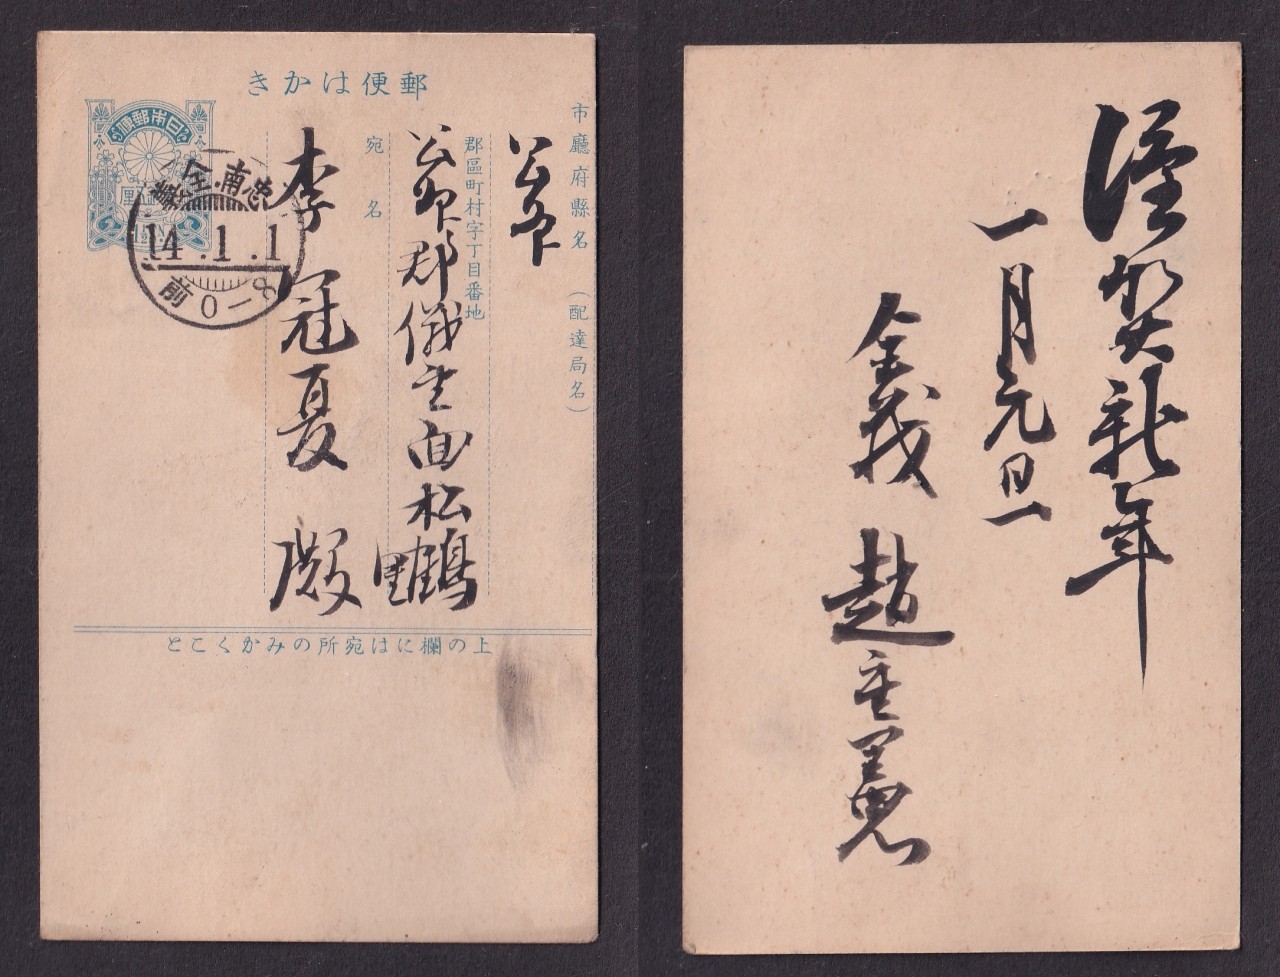 郵便はかき
市廳府縣名（配達局名）
公州
郡區町村字丁目番地
公州郡儀堂面松鶴里
宛名
李冠夏 殿
大日本郵便
忠南.全義
14.1.1
前0-8
上の欄には宛所のみかくこと
謹賀新年
一月元旦
全義 趙重憲